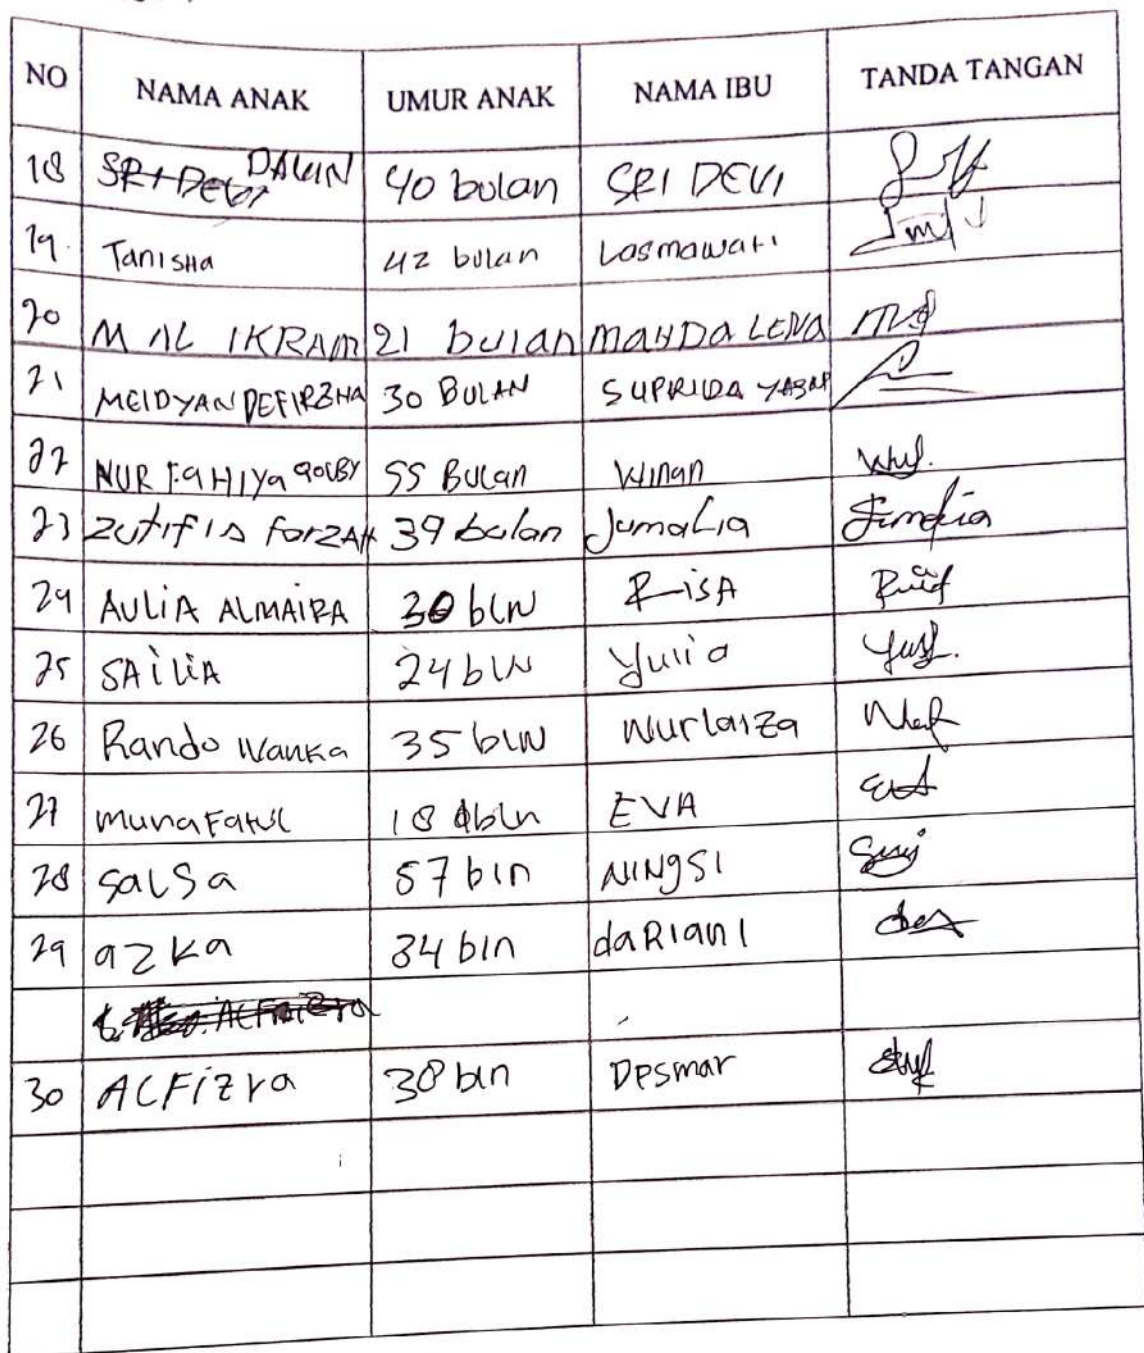 NO NAMA ANAK UMUR ANAK NAMA IBU TANDA TANGAN
18 SRI DEVI DALVIN 40 bulan SRI DEVI
19. Tanisha 42 bulan Losmawati
20 M AL IKRAM 21 bulan MAHDALENA
21 MEIDYAN DEFIRZHA 30 BULAN SUPRIDA
22 NUR FAHIYA QOLBY 55 Bulan Winan
23 39 bulan Jumalia
24 AULIA ALMAIRA 30 bln RISA
25 SAILIA 24 bln Yulia
26 Rando Wanka 35 bln Nurlaiza
27 munaFatul 18 bln EVA
28 Salsa 57 bln NINGSI
29 azka 34 bln daRIANI
30 ALFizra 38 bln Desmar